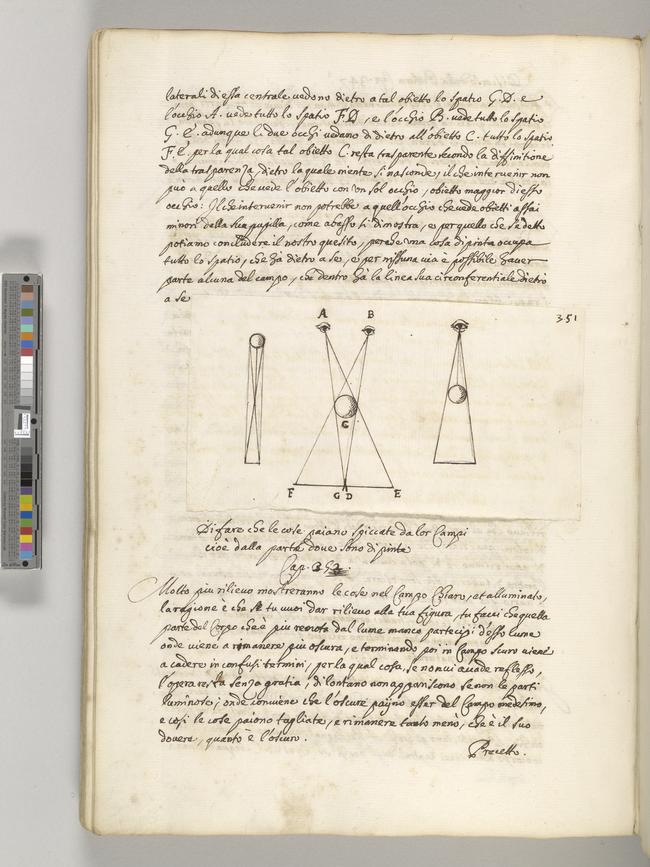 laterali di essa centrale vedono dietro a tal obietto lo spatio G. D. e
l'occhio A. vede tutto lo spatio F. D, e l'occhio B. vede tutto lo spatio
G. E. adunque li due occhi vedano di dietro all'obietto C. tutto lo spatio
F. E. per la qual cosa tal obietto C. resta trasparente secondo la diffinitione
della trasparenza, dietro la quale niente si nasconde, il che intervenir non
può a quello che vede l'obietto con un sol occhio, obietto maggior di esso
occhio: Il che intervenir non potrebbe a quell'occhio che vede obietti assai
minori della sua pupilla, come abasso si dimostra, e per quello che s'è detto
potiamo concludere il nostro quesito, perche una cosa dipinta occupa
tutto lo spatio, che hà dietro a se, e per nissuna via è possibile haver
parte alcuna del campo, che dentro hà la linea sua circonferentiale dietro
a se
351
A B
C
F G D E
Di fare che le cose paiano spiccate da lor Campi
cioè dalla parte dove sono dipinte
Cap.
Molto piu rilievo mostreranno le cose nel Campo Chiaro, et alluminato,
la ragione è che se tu vuoi dar rilievo alla tua figura, tu facci che quella
parte del Corpo che è più remota dal lume manco partecipi d'esso lume
onde viene a rimanere più oscura, e terminando poi in Campo scuro viene
a cadere in confusi termini, per la qual cosa, se non vi accade reflesso,
l'opera resta senza gratia, di lontano non appariscono se non le parti
luminose; onde conviene che l'oscure paijno esser del Campo medesimo,
e cosi le cose paiono tagliate, e rimanere tanto meno, che è il suo
dovere, quanto è l'oscuro.
Precetto.